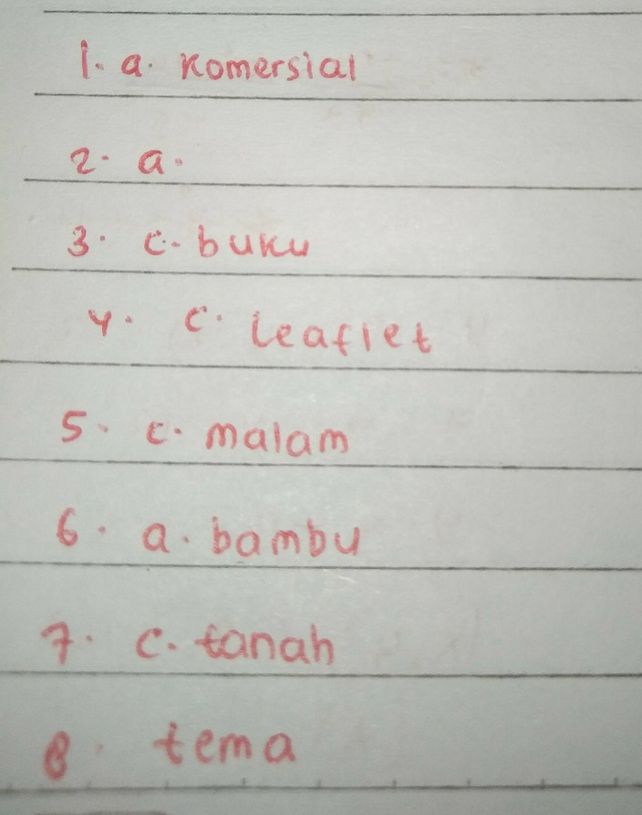 1. a. Komersial
2. a.
3. c. buku
4. c. Leaflet
5. c. malam
6. a. bambu
7. c. tanah
8. tema